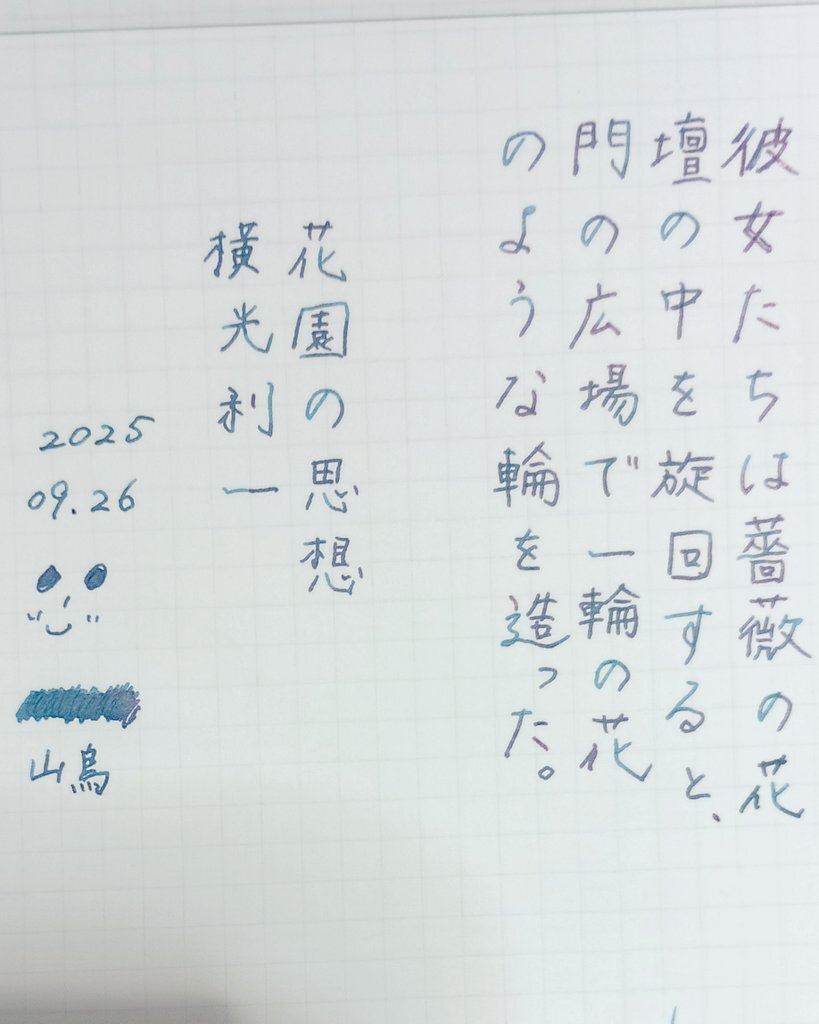 彼女たちは薔薇の花
壇の中を旋回すると、
門の広場で一輪の花
のような輪を造った。
花園の思想
横光利一
2025
09.26
山鳥